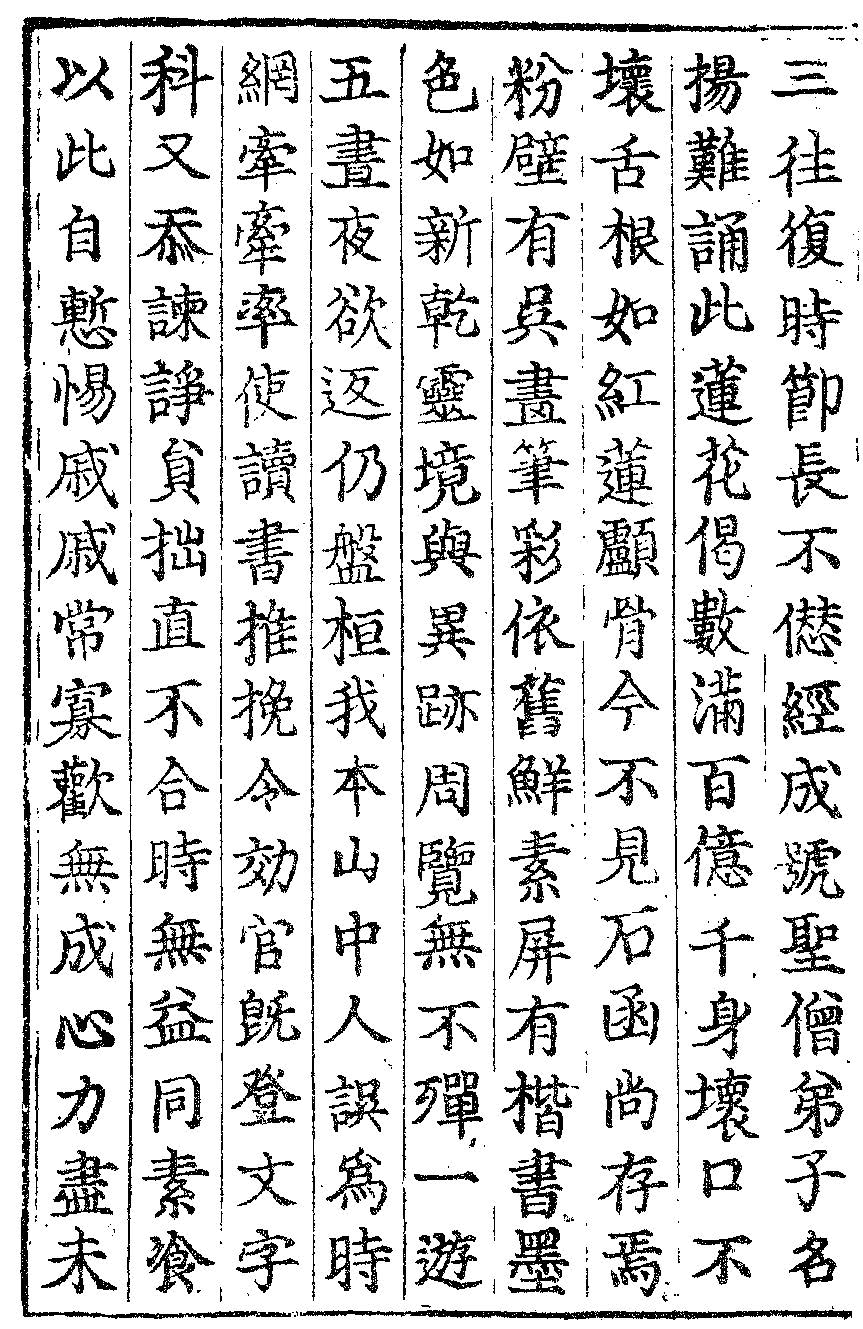 三往復時節長不僁經成號聖僧弟子名
揚難誦此蓮花偈數滿百億千身壞口不
壞舌根如紅蓮顱骨今不見石函尚存焉
粉壁有吳畫筆彩依舊鮮素屏有楷書墨
色如新乾靈境與異跡周覽無不殫一遊
五晝夜欲返仍盤桓我本山中人誤爲時
網牽牽率使讀書推挽令効官旣登文字
科又忝諫諍貟拙直不合時無益同素飡
以此自慙惕戚戚常寡歡無成心力盡未